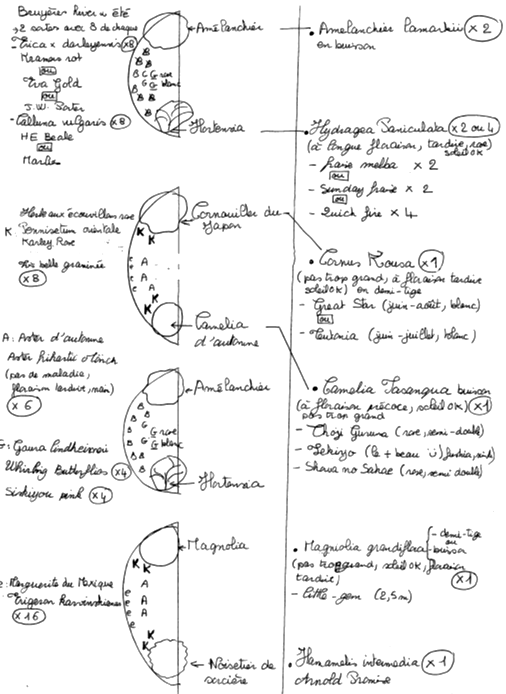 Bruyères hiver x été
→ 2 sortes avec 8 de chaque
- Erica x darleyensis x8
Kramers rot
ou
Eva Gold
ou
J.W. Porter
- Calluna vulgaris x8
HE Beale
ou
Marlies
Amélanchier
B
B
B
B
B C G rose
B G blanc
B B
B
Hortensia
• Amelanchier Lamarkii x 2
en buisson
• Hydragea Paniculata x 2 ou 4
(à longue floraison, tardive, rose)
soleil OK
- fraise melba x 2
ou
- Sunday fraise x 2
ou
- Quick fire x 4
Herbe aux écouvillons rose
K: Pennisetum orientale
Karley Rose
très belle graminée
x 8
Cornouiller du
Japon
K
K
e
e A
e A
e K
K
Camelia
d'automne
• Cornus Kousa x 1
(pas trop grand, à floraison tardive
soleil OK) en demi-tige
- Great Star (juin-août, blanc)
ou
- Teutonia (juin-juillet, blanc)
A: Aster d'automne
Aster
(pas de maladie,
floraison tardive, nain)
x 6
Amélanchier
B
B B
B G rose
B G G blanc
B G
B
B
Hortensia
• Camelia Sasanqua buisson
(à floraison précoce, soleil OK) x1
pas trop grand
- Choji Guruma (rose, semi-double)
- (le + beau Ü) fushia,
- Showa no Sakae (rose, semi double)
G: Gaura lindheimeri
Whirling Butterflies x 4
Siskiyou pink x 4
Magnolia
K K
e A
e A
e A
e
e K
K
Noisetier de
sorcière
• Magnolia grandiflora - demi-tige
ou
- buisson
(pas trop grand, soleil OK, floraison
tardive) x 1
- little-gem (2,5m)
e: Marguerite du Mexique
Erigeron Karvinskianus
x 16
• Hamamelis intermedia x 1
Arnold Promise